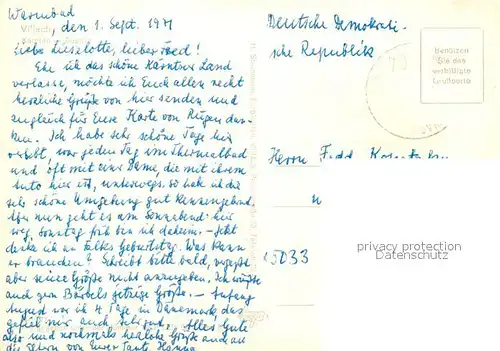 Warmbad
Villach, den 1. Sept. 1971
Liebe Lieselotte, lieber Fred!
Ehe ich das schöne Kärntner Land
verlasse, möchte ich Euch allen recht
herzliche Grüße von hier senden und
zugleich für Eure Karte von Rügen dan-
ken. Ich habe sehr schöne Tage hier
verlebt, war jeden Tag im Thermalbad
und oft mit einer Dame, die mit ihrem
Auto hier ist, unterwegs. So hab ich die
sehr schöne Umgebung gut kennengelernt.
Aber nun geht es am Sonnabend hier
weg, Sonntag früh bin ich daheim. – Jetzt
denke ich an Geburtstag. Was kann
er brauchen? Schreibt bitte bald, vergeßt
aber seine Größe nicht anzugeben. Ich wüßte
auch gern Bärbels jetzige Größe. – Anfang
August war ich 4 Tage in Dänemark, das
gefiel mir auch sehr. Alles Gute
also und nochmals herzliche Grüße auch an
die Eltern von Eurer Tante Hanna
Deutsche Demokrati-
sche Republik
Benützen
Sie das
verbilligte
Grußporto
Herrn
privacy protection
Datenschutz